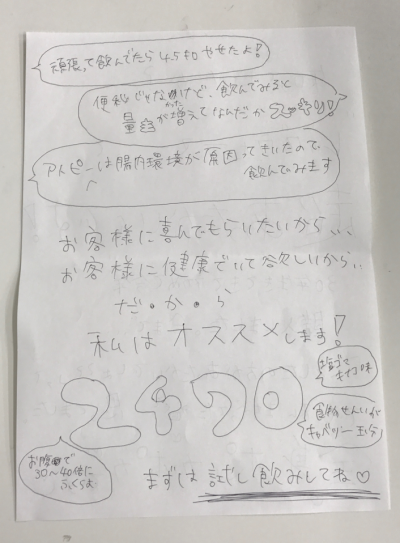 頑張って飲んでたら4.5キロやせたよ!
便秘じゃなかったけど、飲んでみると
量が増えてなんだかスッキリ!
アトピーは腸内環境が原因ってきいたので、
飲んでみます
お客様に喜んでもらいたいから、、、
お客様に健康でいて欲しいから、、
だ・か・ら、
私はオススメします!
塩ゴマ
きなコ味
2470
食物せんいが
キャベツ一玉分
お腹で
30〜40倍に
ふくらむ
まずは試し飲みしてね♡